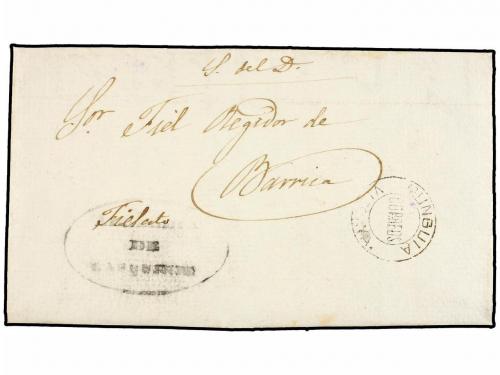 S. del D.
Sor Fiel Regidor de
Barrica
Fielato
DE
MUNGUIA
CORREOS